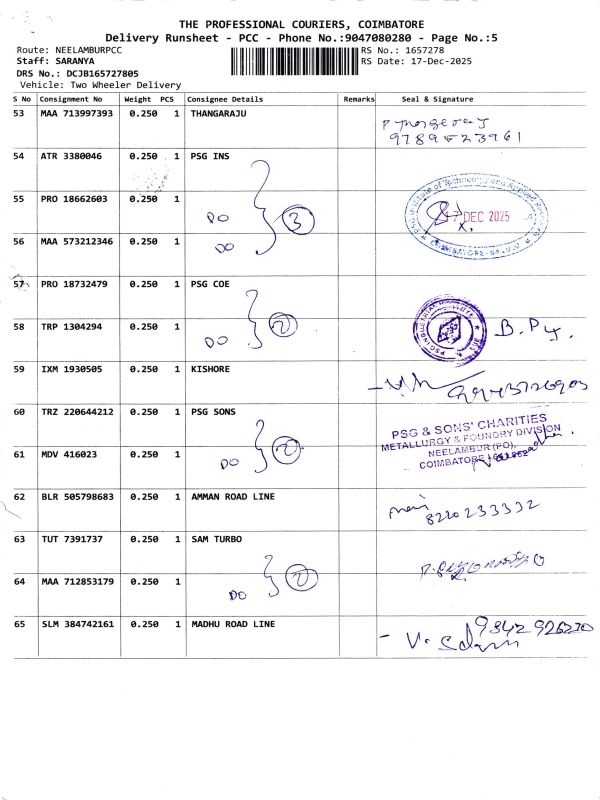 THE PROFESSIONAL COURIERS, COIMBATORE
Delivery Runsheet - PCC - Phone No.:9047080280 - Page No.:5
Route: NEELAMBURPCC RS No.: 1657278
Staff: SARANYA RS Date: 17-Dec-2025
DRS No.: DCJB165727805
Vehicle: Two Wheeler Delivery
S No Consignment No Weight PCS Consignee Details Remarks Seal & Signature
53 MAA 713997393 0.250 1 THANGARAJU
9789523961
54 ATR 3380046 0.250 1 PSG INS
55 PRO 18662603 0.250 1 DO 3 17 DEC 2025
56 MAA 573212346 0.250 1 DO
57 PRO 18732479 0.250 1 PSG COE
58 TRP 1304294 0.250 1 DO 2
59 IXM 1930505 0.250 1 KISHORE
60 TRZ 220644212 0.250 1 PSG SONS
PSG & SONS' CHARITIES
METALLURGY & FOUNDRY DIVISION
NEELAMBUR (PO),
COIMBATORE
61 MDV 416023 0.250 1 DO 2
62 BLR 505798683 0.250 1 AMMAN ROAD LINE
8220233332
63 TUT 7391737 0.250 1 SAM TURBO
64 MAA 712853179 0.250 1 DO 2
65 SLM 384742161 0.250 1 MADHU ROAD LINE
9342926230